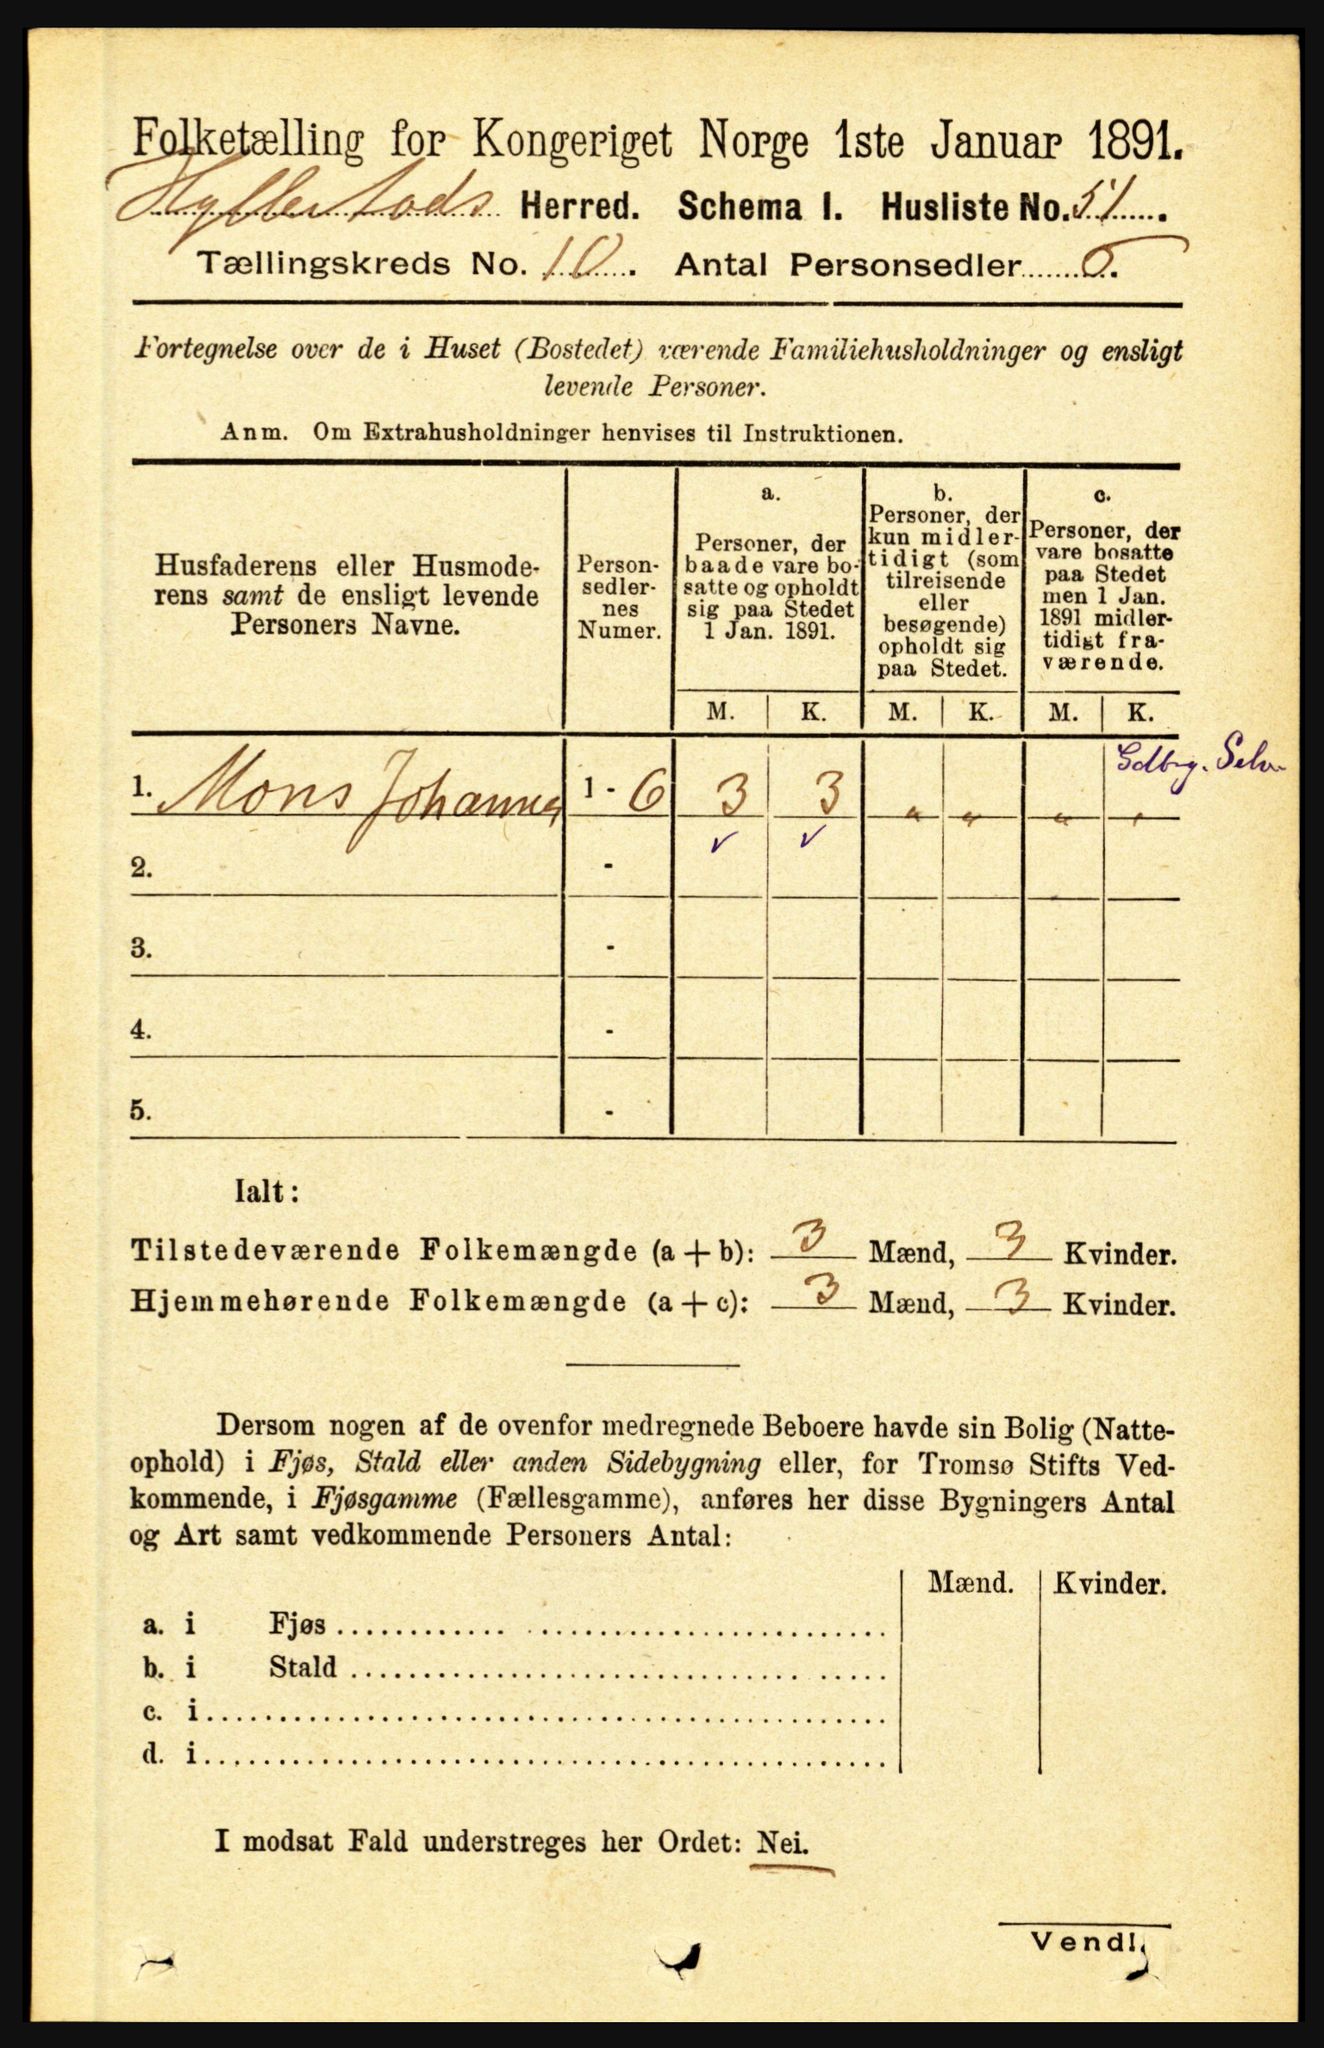 Folketælling for Kongeriget Norge 1ste Januar 1891.
Hyllestads Herred. Schema I. Husliste No. 51.
Tællingskreds No. 10. Antal Personsedler 6.
Fortegnelse over de i Huset (Bostedet) værende Familiehusholdninger og ensligt
levende Personer.
Anm. Om Extrahusholdninger henvises til Instruktionen.
Husfaderens eller Husmode-
rens samt de ensligt levende
Personers Navne.
Person-
sedler-
nes
Numer.
a.
Personer, der
baade vare bo-
satte og opholdt
sig paa Stedet
1 Jan. 1891.
b.
Personer, der
kun midler-
tidigt (som
tilreisende
eller
besøgende)
opholdt sig
paa Stedet.
c.
Personer, der
vare bosatte
paa Stedet
men 1 Jan.
1891 midler-
tidigt fra-
værende.
M. K. M. K. M. K.
Gdbrg. Selv
1. Mons Johannes 1 - 6 3 3 " " " "
2. - ✓ ✓
3. -
4. -
5. -
Ialt:
Tilstedeværende Folkemængde (a + b): 3 Mænd, 3 Kvinder.
Hjemmehørende Folkemængde (a + c): 3 Mænd, 3 Kvinder.
Dersom nogen af de ovenfor medregnede Beboere havde sin Bolig (Natte-
ophold) i Fjøs, Stald eller anden Sidebygning eller, for Tromsø Stifts Ved-
kommende, i Fjøsgamme (Fællesgamme), anføres her disse Bygningers Antal
og Art samt vedkommende Personers Antal:
Mænd. Kvinder.
a. i Fjøs
b. i Stald
c. i
d. i
I modsat Fald understreges her Ordet: Nei.
Vend!